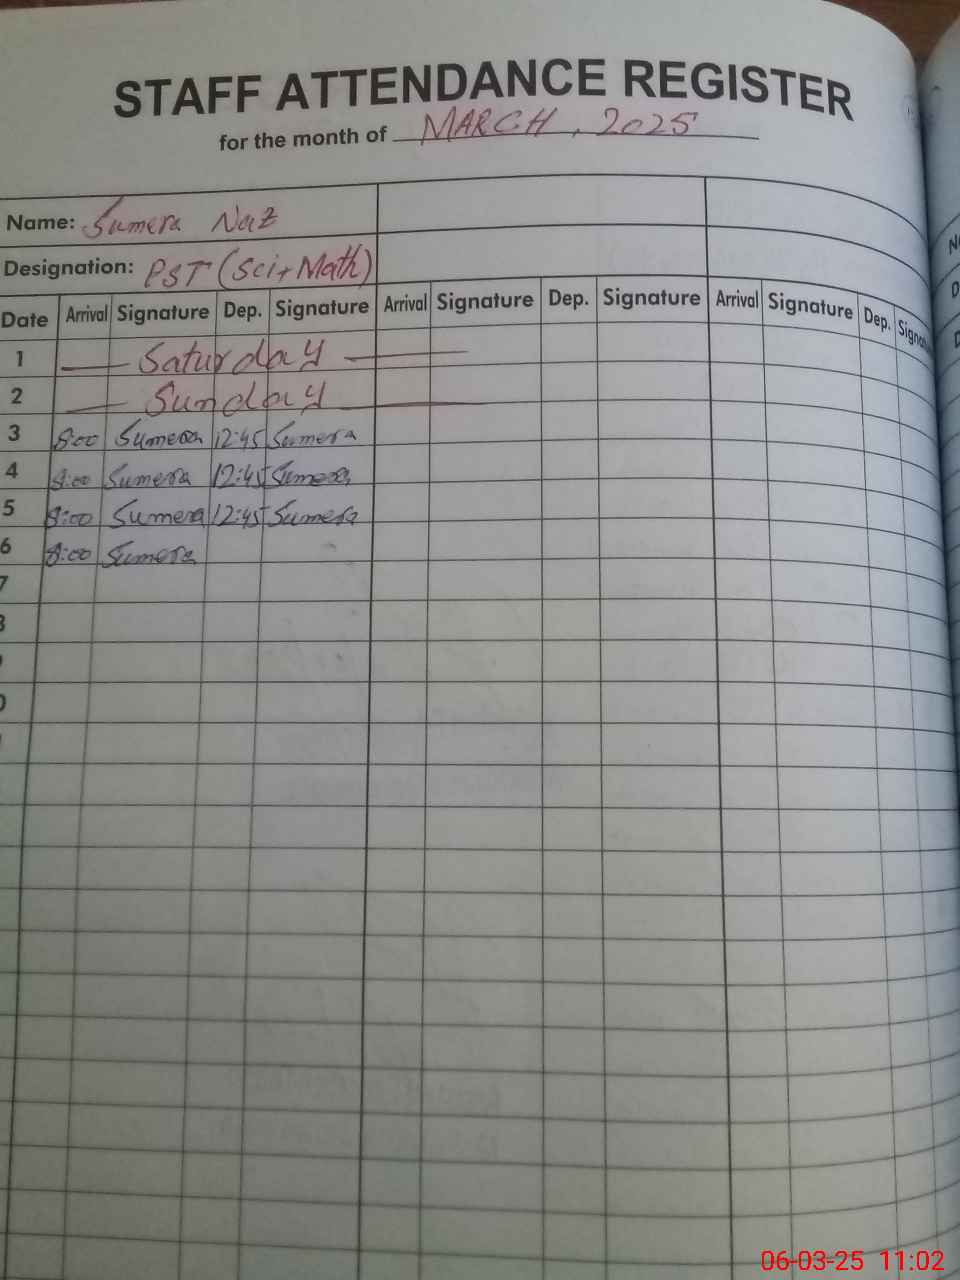 STAFF ATTENDANCE REGISTER
for the month of MARCH, 2025
Name: Sumera Naz
Designation: PST (Sci+Math)
Date Arrival Signature Dep. Signature Arrival Signature Dep. Signature Arrival Signature Dep. Signatu
1 — Saturday —
2 — Sunday —
3 8:00 Sumera 12:45 Sumera
4 8:00 Sumera 12:45 Sumera
5 8:00 Sumera 12:45 Sumera
6 8:00 Sumera
7
06-03-25 11:02